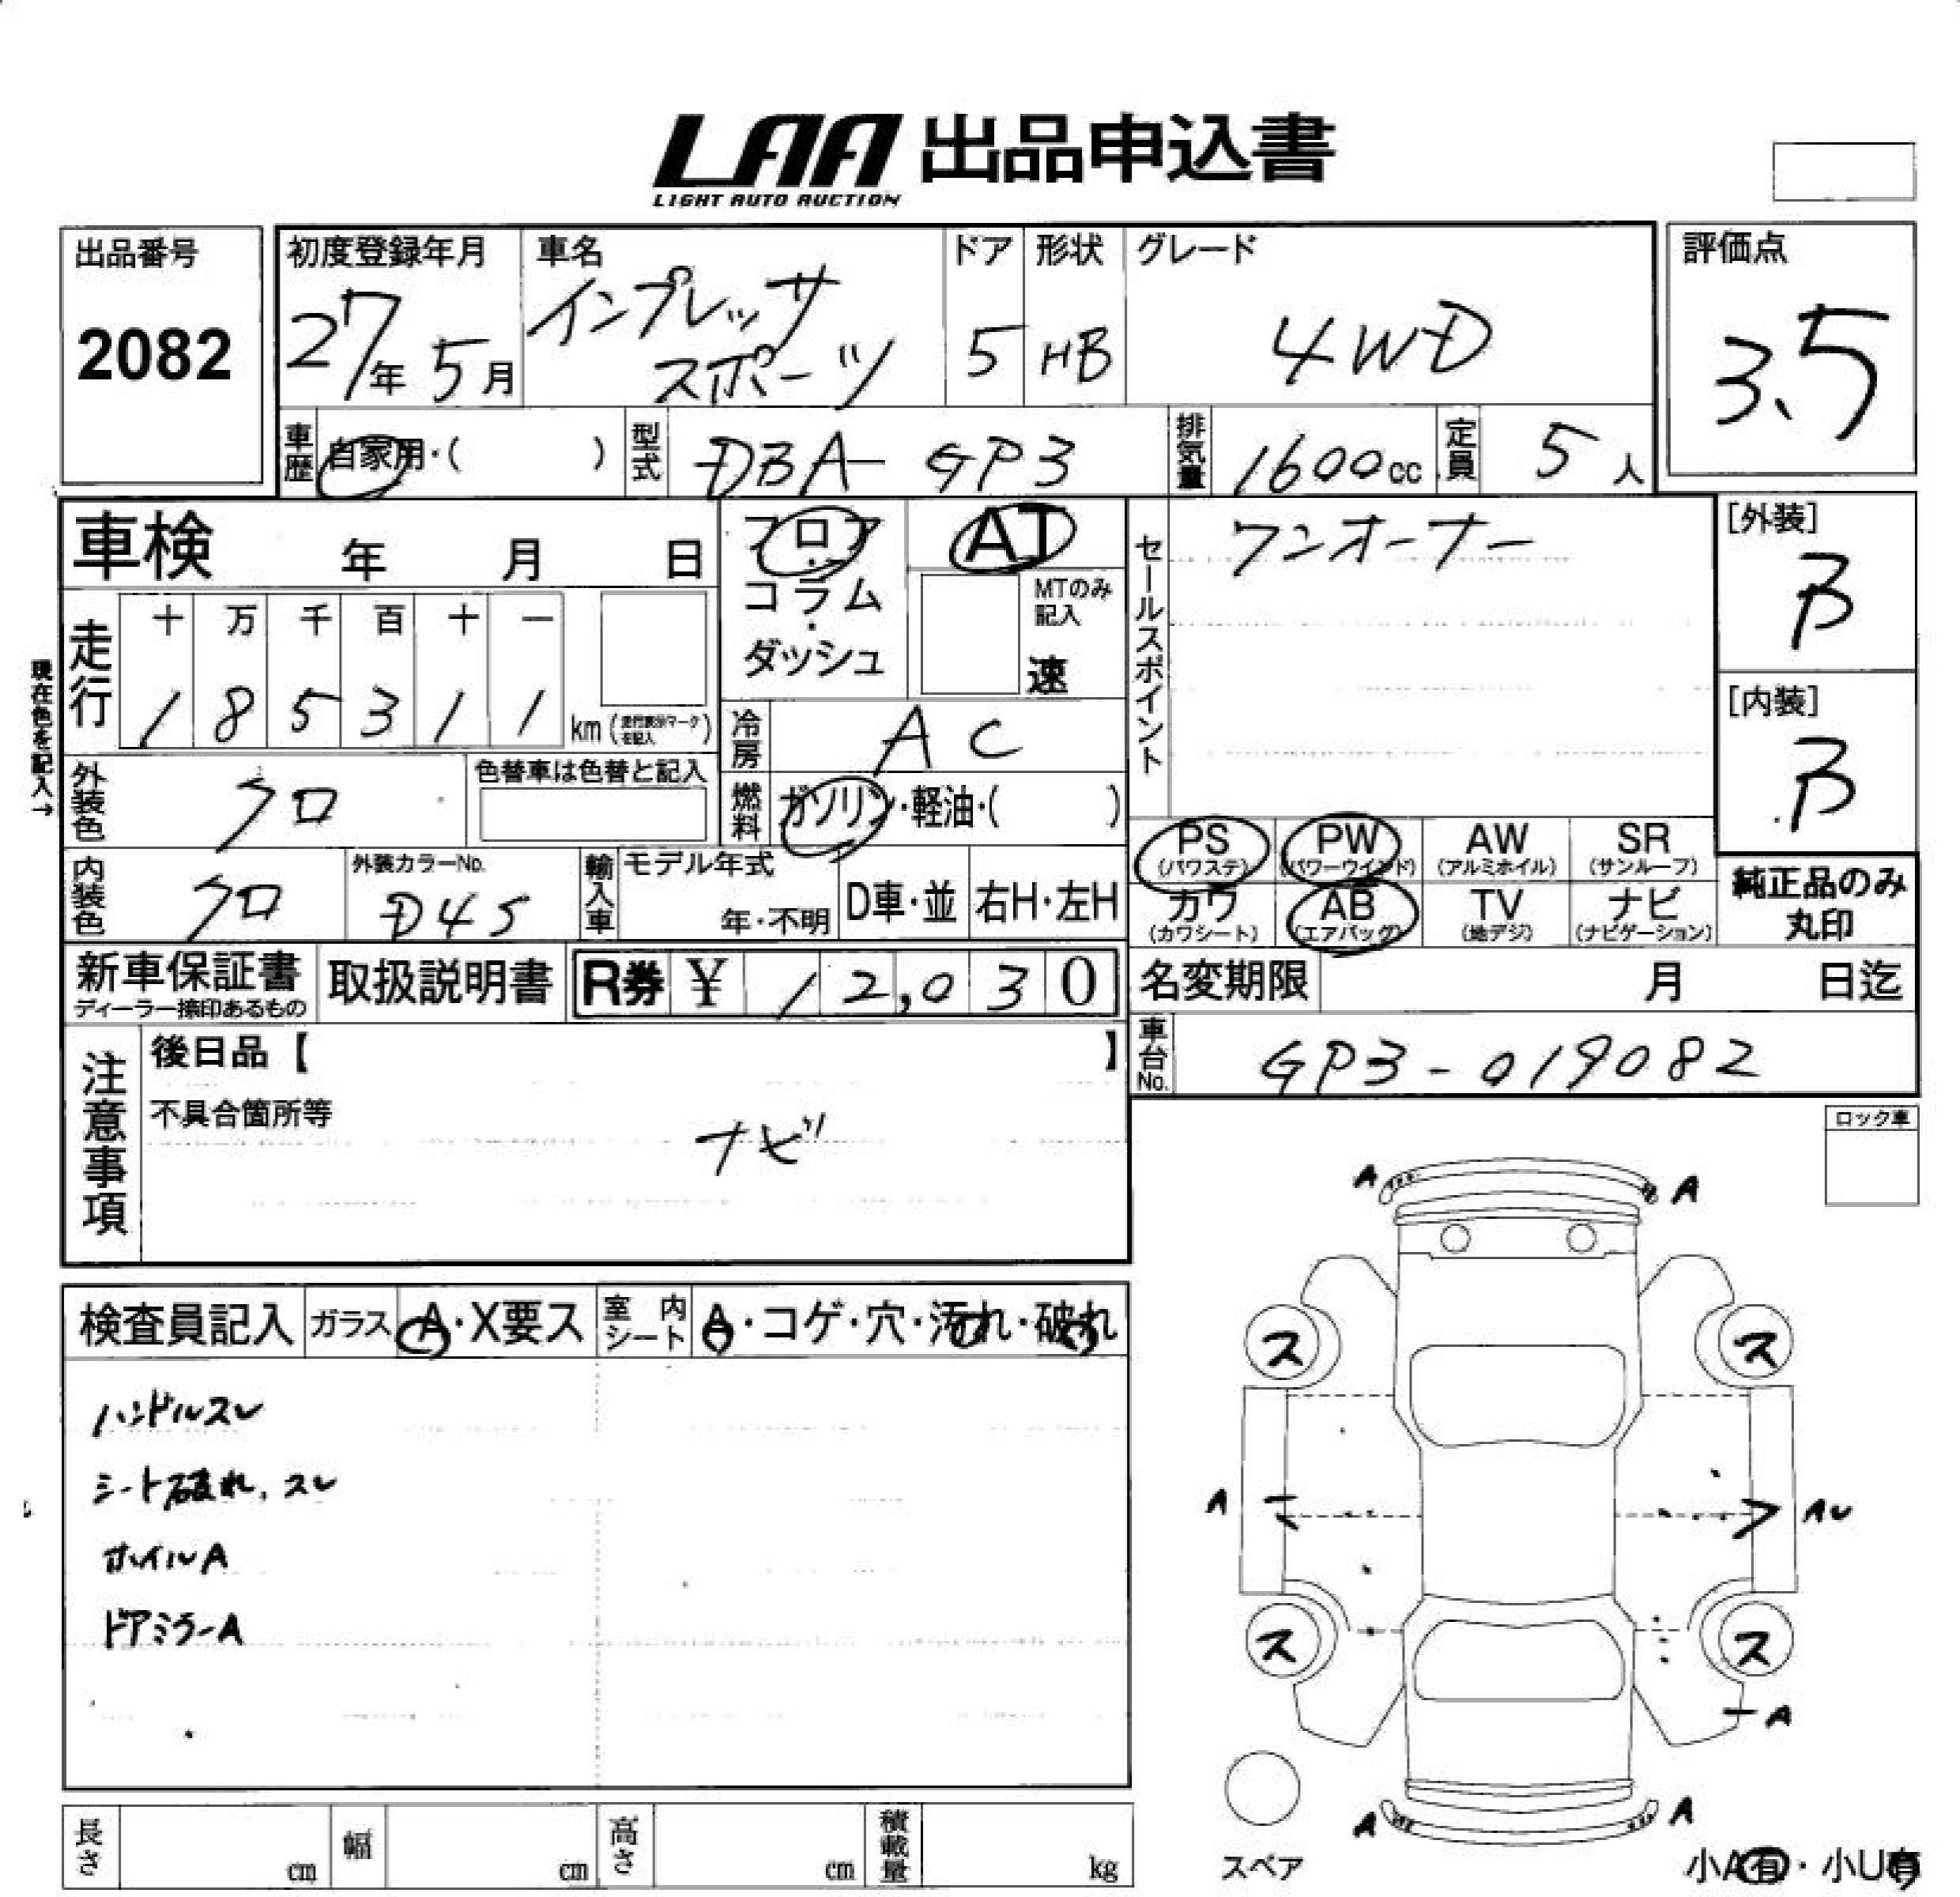 LAA 出品申込書
LIGHT AUTO AUCTION
出品番号
2082
初度登録年月
27年 5月
車名
インプレッサ
スポーツ
ドア
5
形状
HB
グレード
4WD
評価点
3.5
車歴
自家用・( )
型式
DBA-GP3
排気量
1600cc
定員
5人
車検 年 月 日
フロア
・
コラム
・
ダッシュ
AT
MTのみ
記入
速
セールスポイント
ワンオーナー
[外装]
B
[内装]
B
現在色を記入→
走行
十 万 千 百 十 一
1 8 5 3 1 1 km (走行表示マークを記入)
冷房
AC
外装色
クロ
色替車は色替と記入
燃料
ガソリン・軽油・( )
PS (パワステ)
PW (パワーウインド)
AW (アルミホイル)
SR (サンルーフ)
カワ (カワシート)
AB (エアバッグ)
TV (地デジ)
ナビ (ナビゲーション)
純正品のみ
丸印
内装色
クロ
外装カラーNo.
D4S
輸入車
モデル年式
年・不明
D車・並
右H・左H
新車保証書
ディーラー捺印あるもの
取扱説明書
R券 ¥ 12,030
名変期限 月 日迄
車台No.
GP3-019082
注意事項
後日品【 】
不具合箇所等
ナビ
ロック車
検査員記入
ガラス A・X要ス
室内シート A・コゲ・穴・汚れ・破れ
ハンドルスレ
シート破れ、スレ
ホイルA
ドアミラーA
A A
ス ス
A AU
ス ス
A
A A
スペア
小A有・小U有
長さ cm
幅 cm
高さ cm
積載量 kg